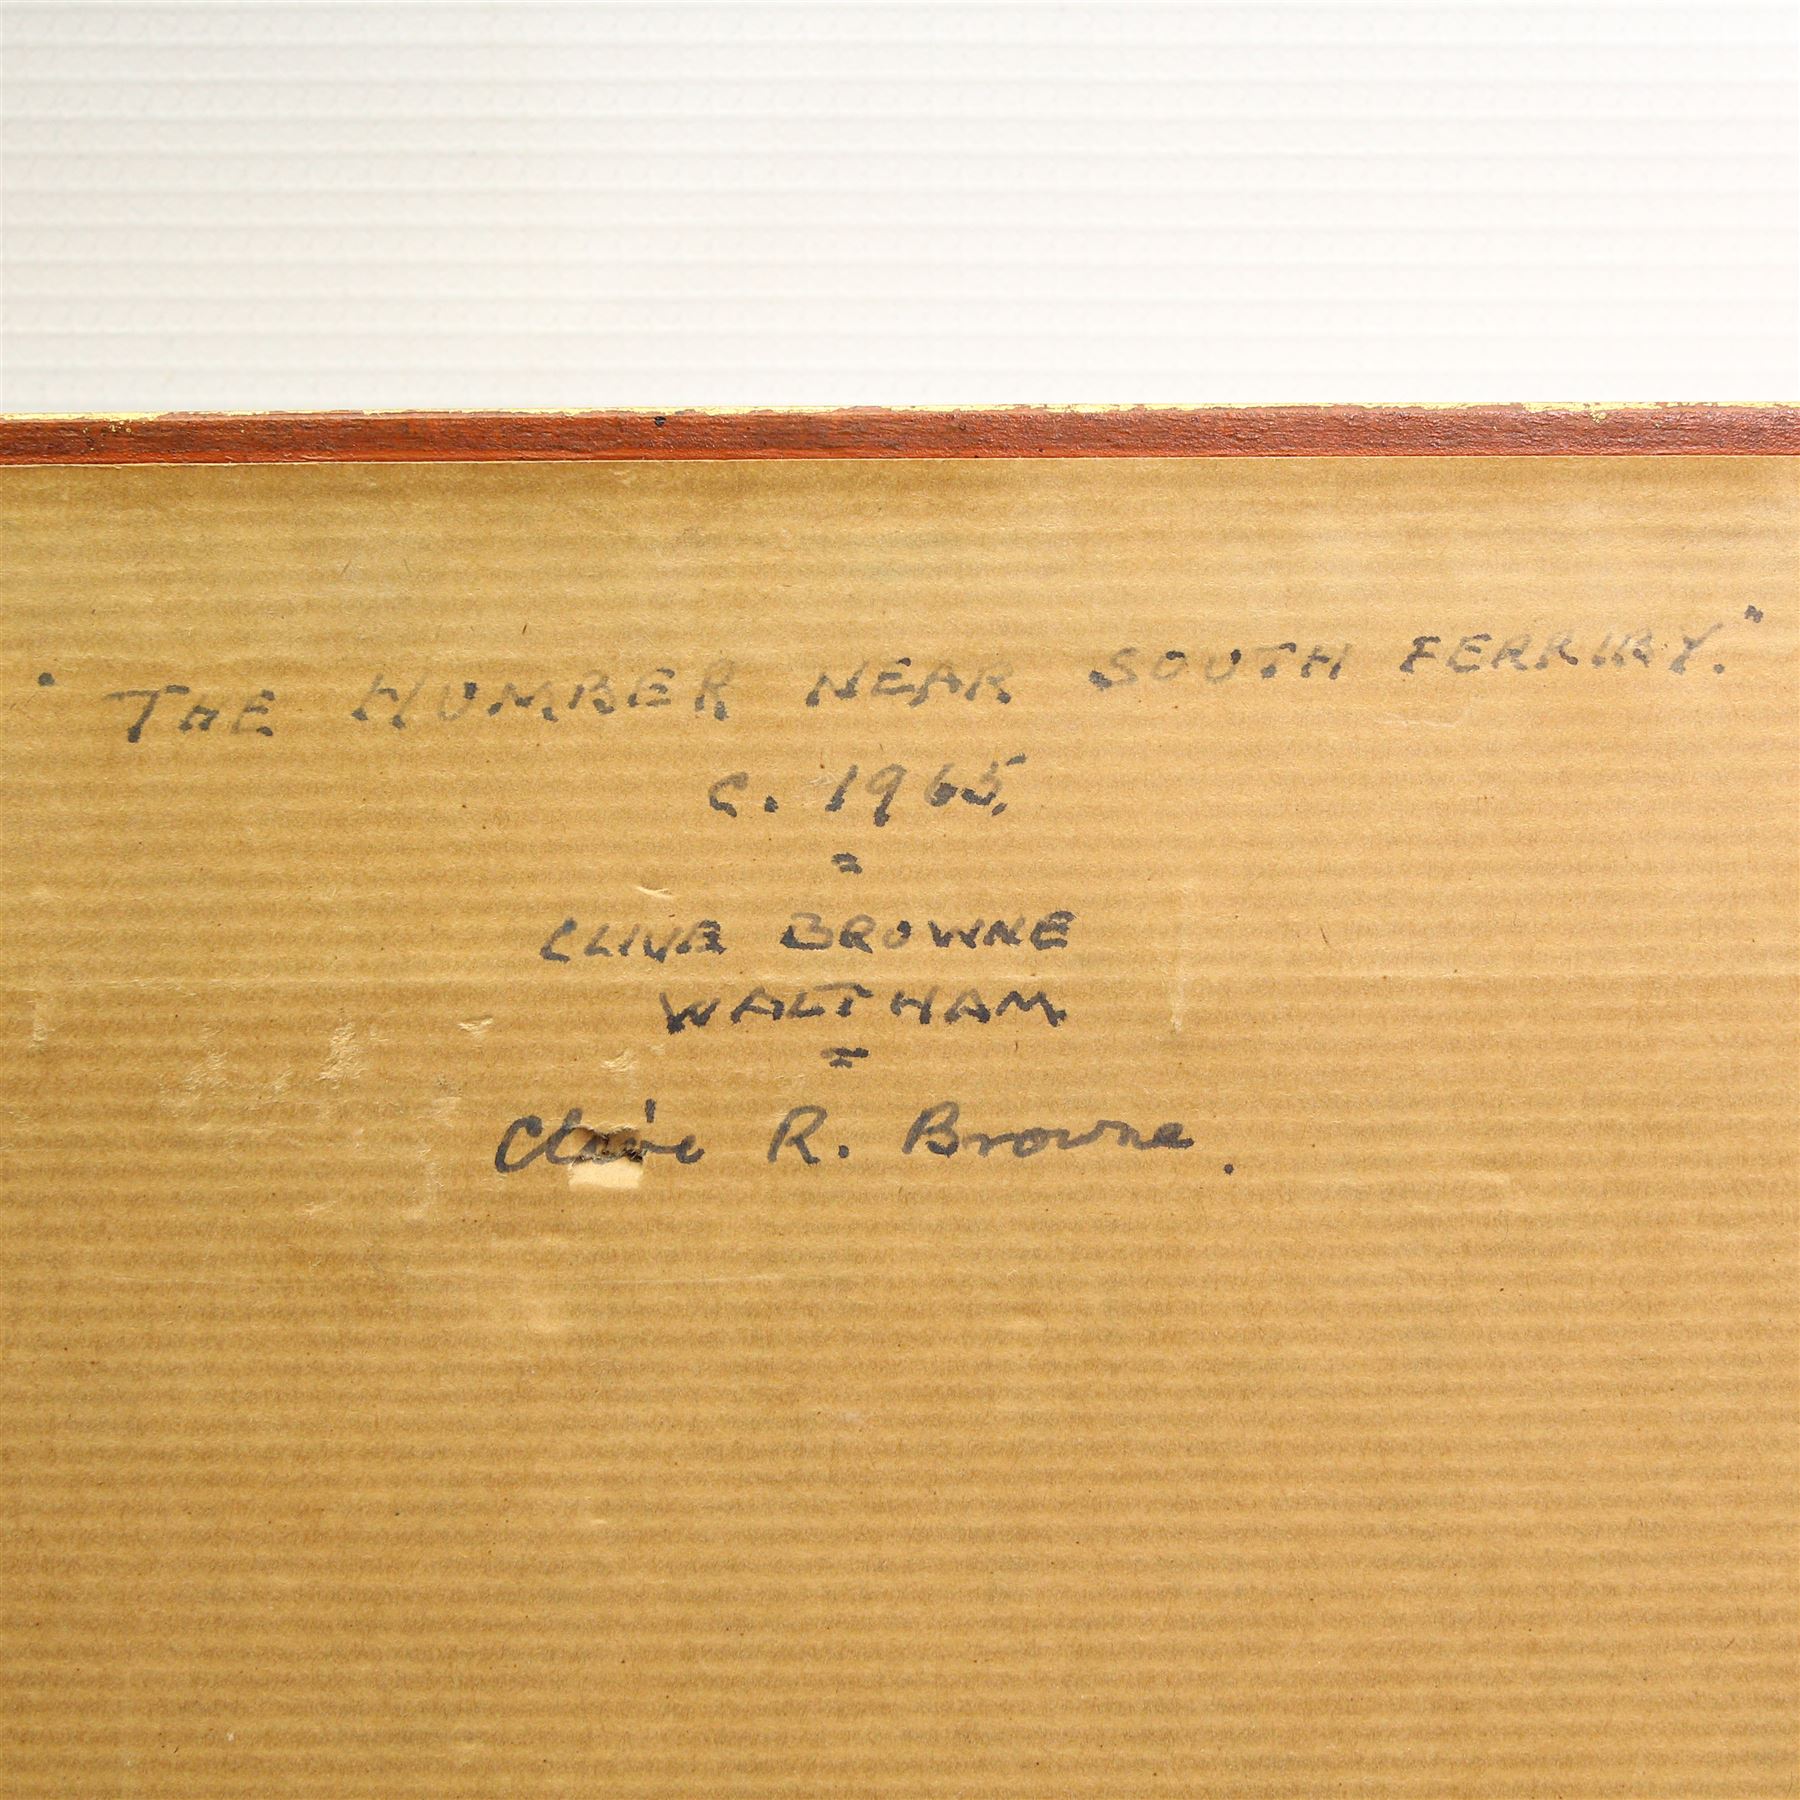 "THE HUMBER NEAR SOUTH FERRIBY."
c. 1965.
=
CLIVE BROWNE
WALTHAM
=
Clive R. Browne.